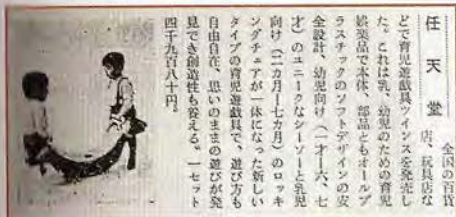 任天堂
全国の百貨
店、玩具店な
どで育児遊戯具ツインスを発売し
た。これは乳、幼児のための育児
娯楽品で本体、部品ともオールプ
ラスチックのソフトデザインの安
全設計、幼児向け(一才ー六、七
才)のユニークなシーソーと乳児
向け(二カ月ー七カ月)のロッキ
ングチェアが一体になった新しい
タイプの育児遊戯具で、遊び方も
自由自在、思いのままの遊びが発
見でき創造性も養える。一セット
四千九百八十円。